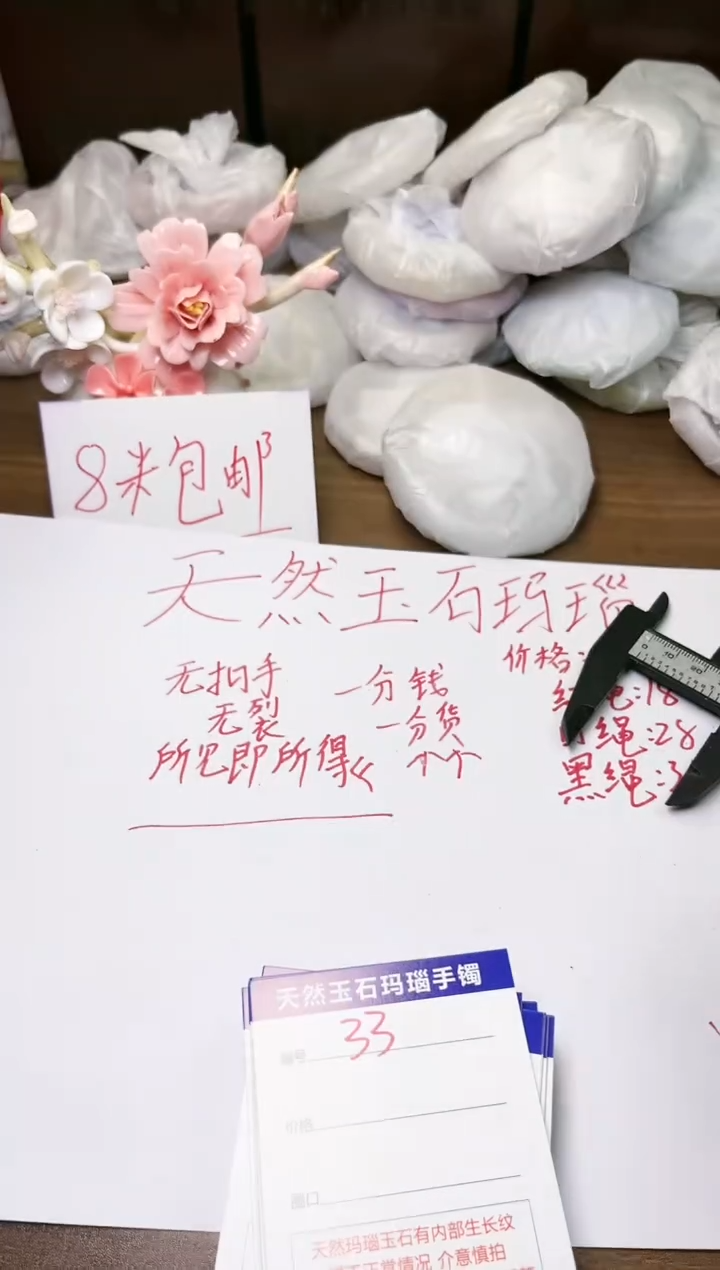 8米包邮
天然玉石玛瑙
价格:
无扣手
一分钱
红绳:18
无裂
一分货
绳:28
所见即所得
黑绳:3
天然玉石玛瑙手镯
编号 33
价格
圈口
天然玛瑙玉石有内部生长纹
正常情况 介意慎拍